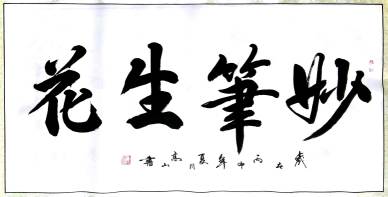 妙筆生花
歲在丙申年夏月高山書